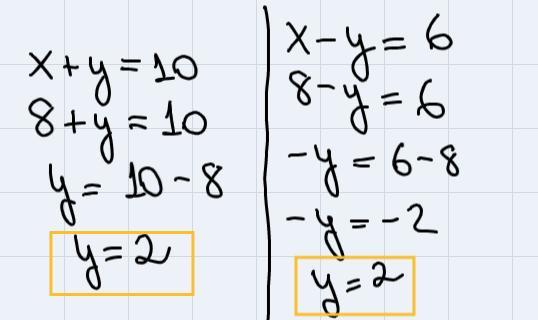 x+y=10
8+y=10
y=10-8
y=2
x-y=6
8-y=6
-y=6-8
-y=-2
y=2